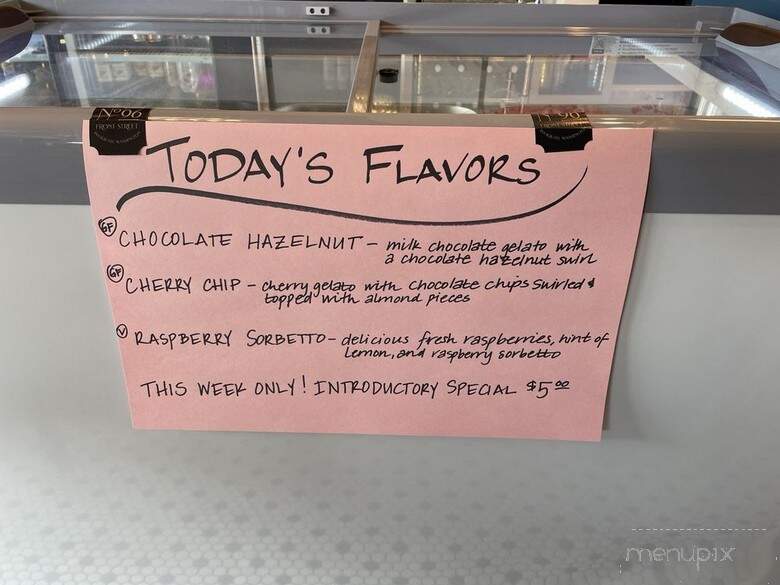 Nº 96
FRONT STREET
Nº 96
TODAY'S FLAVORS
GF CHOCOLATE HAZELNUT - milk chocolate gelato with
a chocolate hazelnut swirl
GF CHERRY CHIP - cherry gelato with chocolate chips swirled &
topped with almond pieces
V RASPBERRY SORBETTO - delicious fresh raspberries, hint of
lemon, and raspberry sorbetto
THIS WEEK ONLY! INTRODUCTORY SPECIAL $5.00
menupix